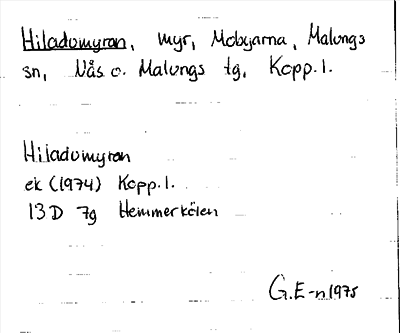 Hiladomyran, myr, Mobyarna, Malungs
sn, Nås o. Malungs tg, Kopp.l.
Hiladomyran
ek (1974) Kopp.l.
13D 7g Hemmerkölen
G.E-n 1975